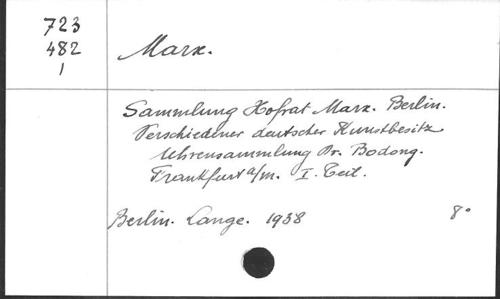 723
482
1
Marx.
Sammlung Hofrat Marx. Berlin.
Verschiedener deutscher Kunstbesitz
Uhrensammlung Dr. Bodong.
Frankfurt a/m. I. Teil.
Berlin. Lange. 1938 8°